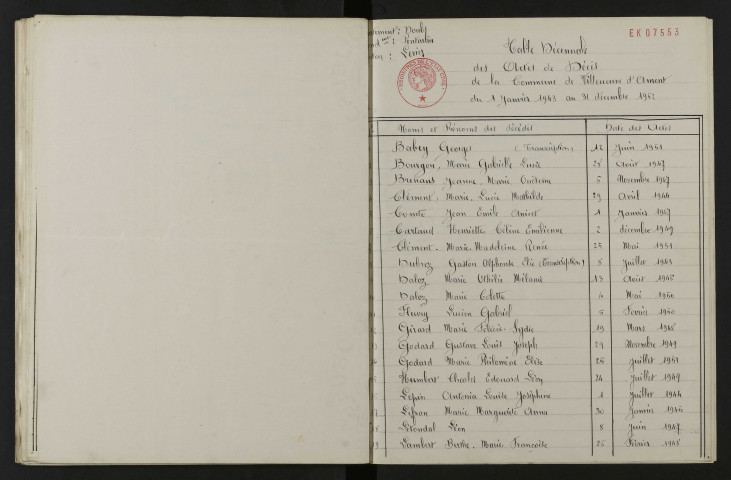 Doubs
EK 07553
Pontarlier
Table Décennale
: Levier
des Actes de Décès
de la Commune de Villeneuve d'Amont
du 1 Janvier 1943 au 31 décembre 1952
Noms et Prénoms des décédés Date des Actes
Babey Georges (Transcription) 12 Juin 1951
Bourgon, Marie Gabrielle 28 Août 1947
Jeanne Marie 5 Novembre 1947
Clément, Marie, Lucie Mathilde 29 Avril 1944
Comte Jean Emile 1 Janvier 1947
Cartaud Henriette Céline Emilienne 2 décembre 1949
Clément Marie Madeleine Renée 25 Mai 1951
Gaston Alphonse Elie (Transcription) 5 Juillet
Daloz Marie Othilie Mélanie 13 Août
Daloz Marie Colette 4 Mai 1950
Fleury Lucien Gabriel 5 Février 1950
Gérard Marie Félicie Lydie 19 Mars
Godard Gustave Louis Joseph 29 Novembre 1949
Godard Marie Philomène Elise 26 Juillet 1951
Humbert Charles Edouard Léon 24 Juillet 1949
Lepin Antonia Louise Joséphine 1 Juillet 1944
Marie Marguerite Anna 30 Janvier
Léon 8 Juin 1947
Lambert Berthe Marie Françoise 25 Février